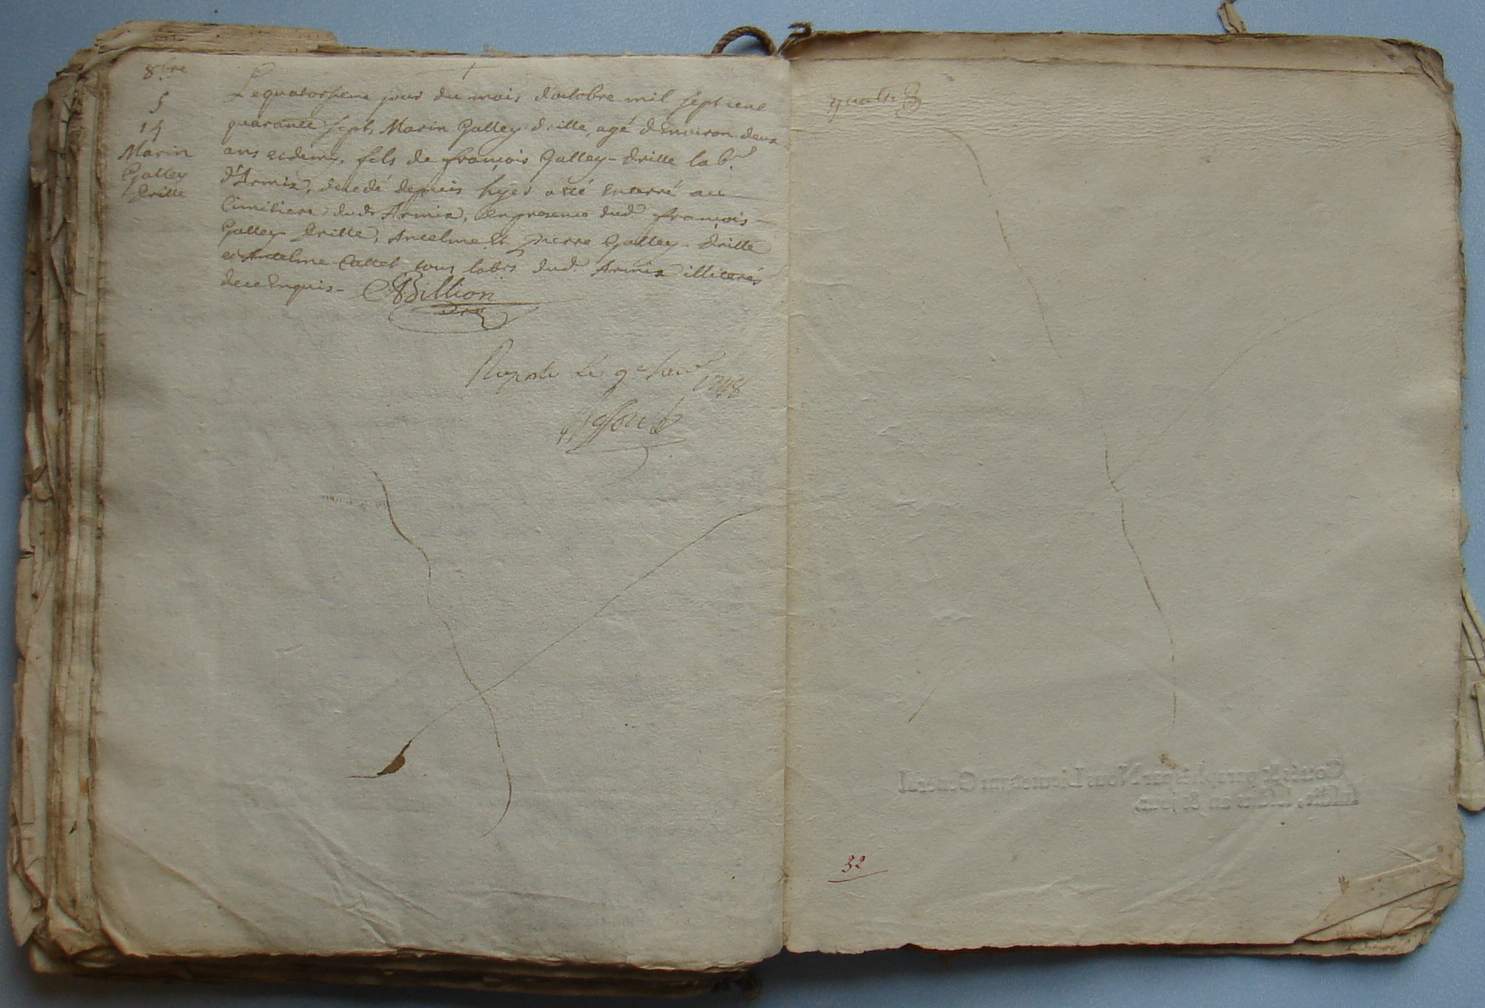 8bre
5
14
Marin
Galley
Drille
Le quatorsieme jour du mois d'octobre mil sept cent
quarante sept, Marin Galley-drille, agé d'environ deux
ans et demy, fils de françois Galley-drille lab.r
d'Armix, decedé depuis hyer a eté enterré au
Cimetiere dud. Armix, en presence dud. françois
Galley Drille, Antelme et pierre Galley-drille
et Antelme Callet tous labrs dud. Armix illiterés
de ce Enquis-
Billion
le 9e 1748
quatre
32